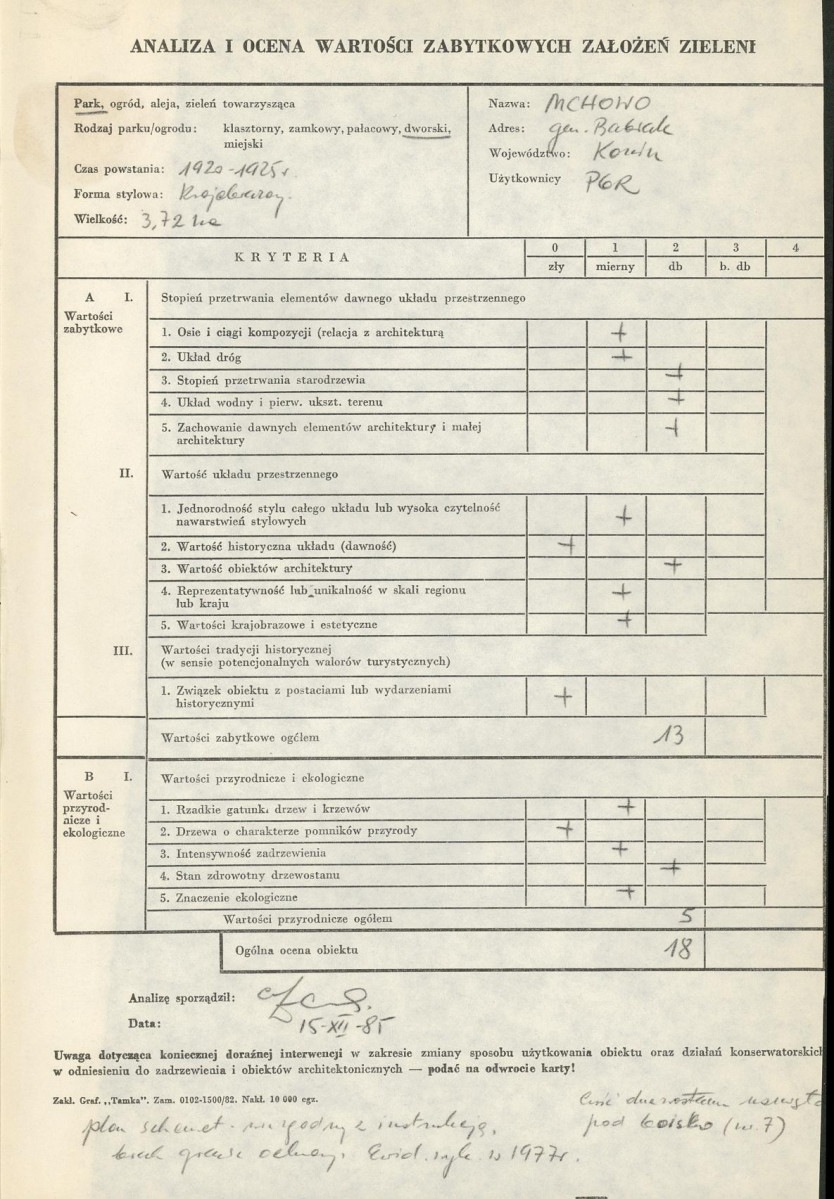 ANALIZA I OCENA WARTOŚCI ZABYTKOWYCH ZAŁOŻEŃ ZIELENI
Park, ogród, aleja, zieleń towarzysząca
Rodzaj parku/ogrodu: klasztorny, zamkowy, pałacowy, dworski,
miejski
Czas powstania: 1920-1925 r
Forma stylowa: Krajobrazowy.
Wielkość: 3,72 ha
Nazwa: MCHOWO
Adres: gm. Babiak
Województwo: Konin
Użytkownicy PGR
KRYTERIA
0 1 2 3 4
zły mierny db b. db
A I. Stopień przetrwania elementów dawnego układu przestrzennego
Wartości
zabytkowe
1. Osie i ciągi kompozycji (relacja z architekturą +
2. Układ dróg +
3. Stopień przetrwania starodrzewia +
4. Układ wodny i pierw. ukszt. terenu +
5. Zachowanie dawnych elementów architektury i małej
architektury +
II. Wartość układu przestrzennego
1. Jednorodność stylu całego układu lub wysoka czytelność
nawarstwień stylowych +
2. Wartość historyczna układu (dawność) +
3. Wartość obiektów architektury +
4. Reprezentatywność lub unikalność w skali regionu
lub kraju +
5. Wartości krajobrazowe i estetyczne +
III. Wartości tradycji historycznej
(w sensie potencjonalnych walorów turystycznych)
1. Związek obiektu z postaciami lub wydarzeniami
historycznymi +
Wartości zabytkowe ogółem 13
B I. Wartości przyrodnicze i ekologiczne
Wartości
przyrod-
nicze i
ekologiczne
1. Rzadkie gatunki drzew i krzewów +
2. Drzewa o charakterze pomników przyrody +
3. Intensywność zadrzewienia +
4. Stan zdrowotny drzewostanu +
5. Znaczenie ekologiczne +
Wartości przyrodnicze ogółem 5
Ogólna ocena obiektu 18
Analizę sporządził:
Data: 15-XII-85
Uwaga dotycząca koniecznej doraźnej interwencji w zakresie zmiany sposobu użytkowania obiektu oraz działań konserwatorskich
w odniesieniu do zadrzewienia i obiektów architektonicznych — podać na odwrocie karty!
Zakł. Graf. „Tamka". Zam. 0102-1500/82. Nakł. 10 000 egz.
plan schemat. niezgodny z instrukcją,
brak granic ochrony. Ewid. w 1977r.
pod boisko (nr 7)